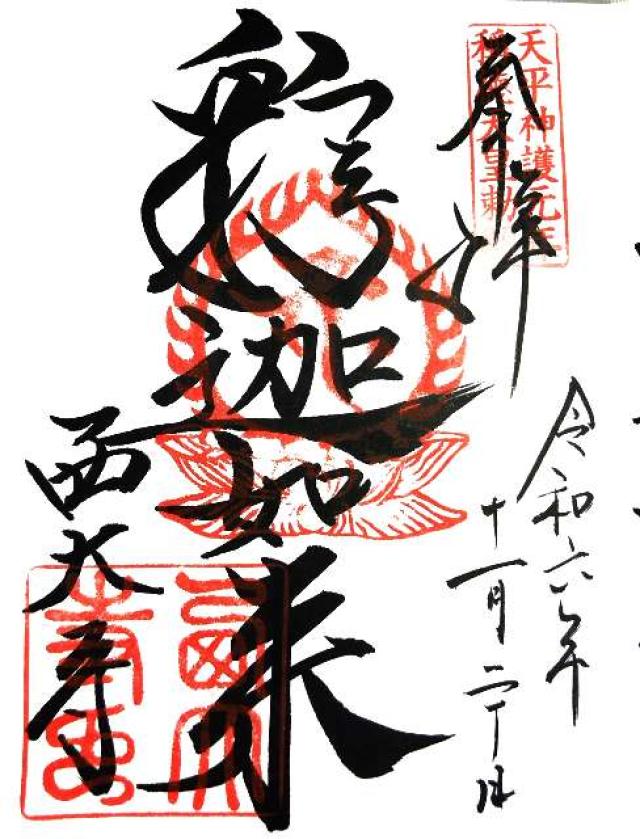 天平神護元年
稱德天皇勅
奉拝
令和六年
十一月二十日
釈迦如来
西大寺